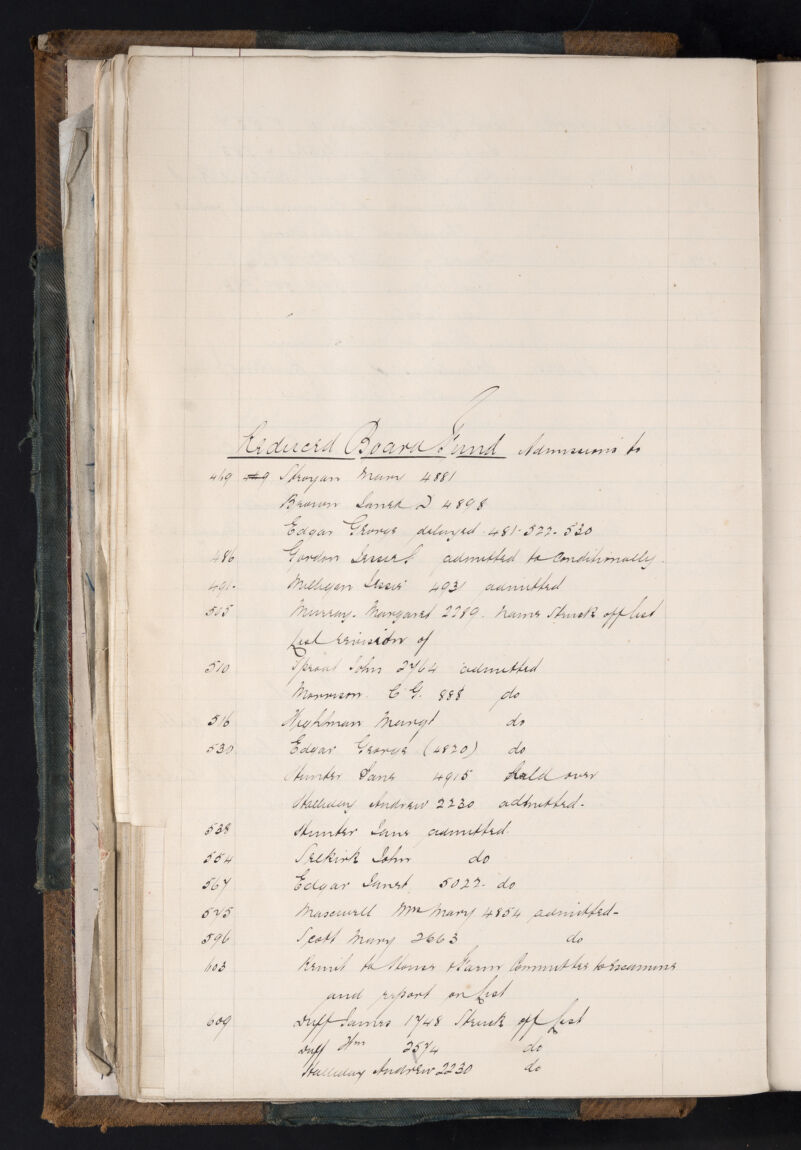 Reduced Board Fund Admissions to
469 Stroyan Mary 4881
Brown Janet D 4898
Edgar George delayed 481-522-530
486 Gordon Jessie S admitted to conditionally.
491- Milligan Jessie 4931 admitted
505 Murray. Margaret 2789. Name Struck off list
List revision of
510 Sproat John 2764 admitted
Morrison C G. 888 do
516 Wightman Margt do
530 Edgar George (4820) do
Hunter Jane 4915 held over
Halliday Andrew 2230 admitted-
538 Hunter Jane admitted
554 Selkirk John do
567 Edgar Janet. 5022- do
575 Maxwell Mrs Mary 4854 admitted-
596 Scott Mary 2663 do
603 Remit to House & Farm Committee to Examine
and report on List
609 Duff James 1748 Struck off List
Duff Wm 2574 do
Halliday Andrew 2230 do